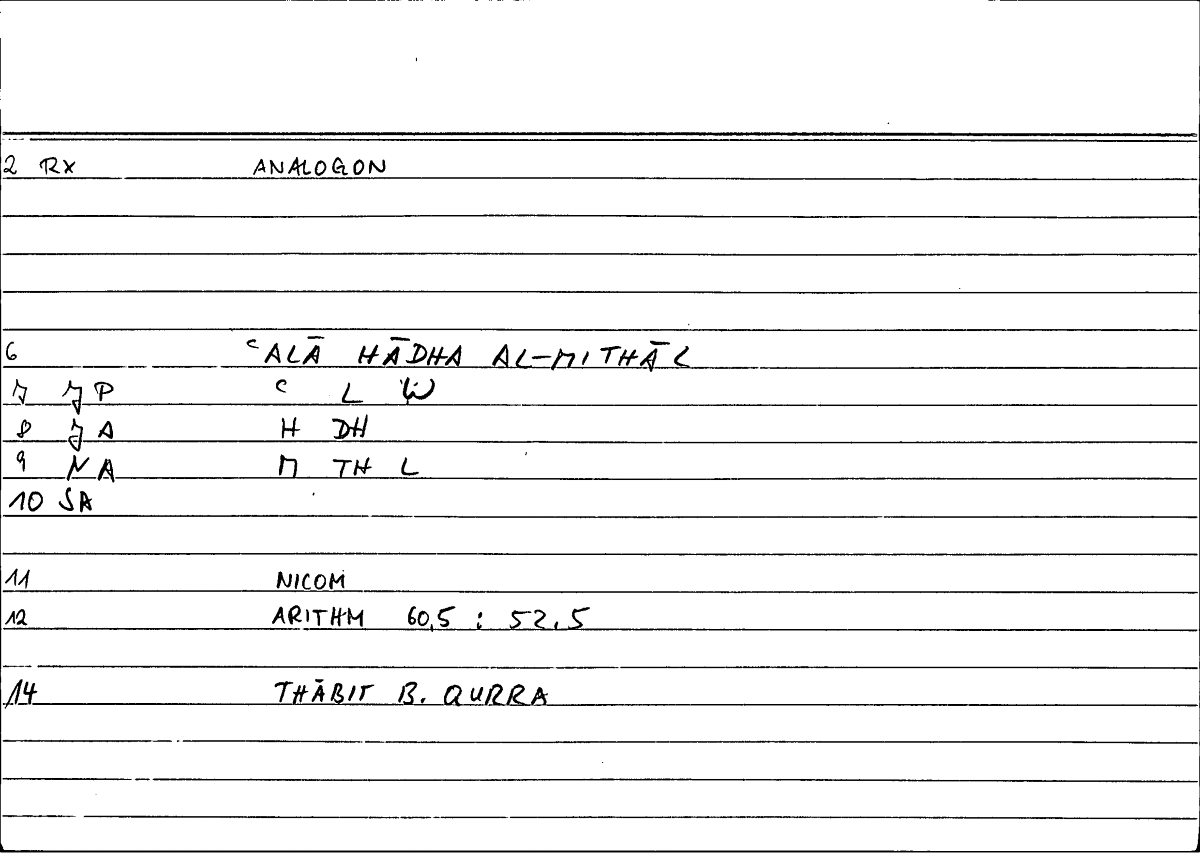 2 RX ANALOGON
6 ᶜALĀ HĀDHA AL-MITHĀL
7 JP ᶜ L W
8 JA H DH
9 NA M TH L
10 SA
11 NICOM
12 ARITHM 60,5 : 52,5
14 THĀBIT B. QURRA